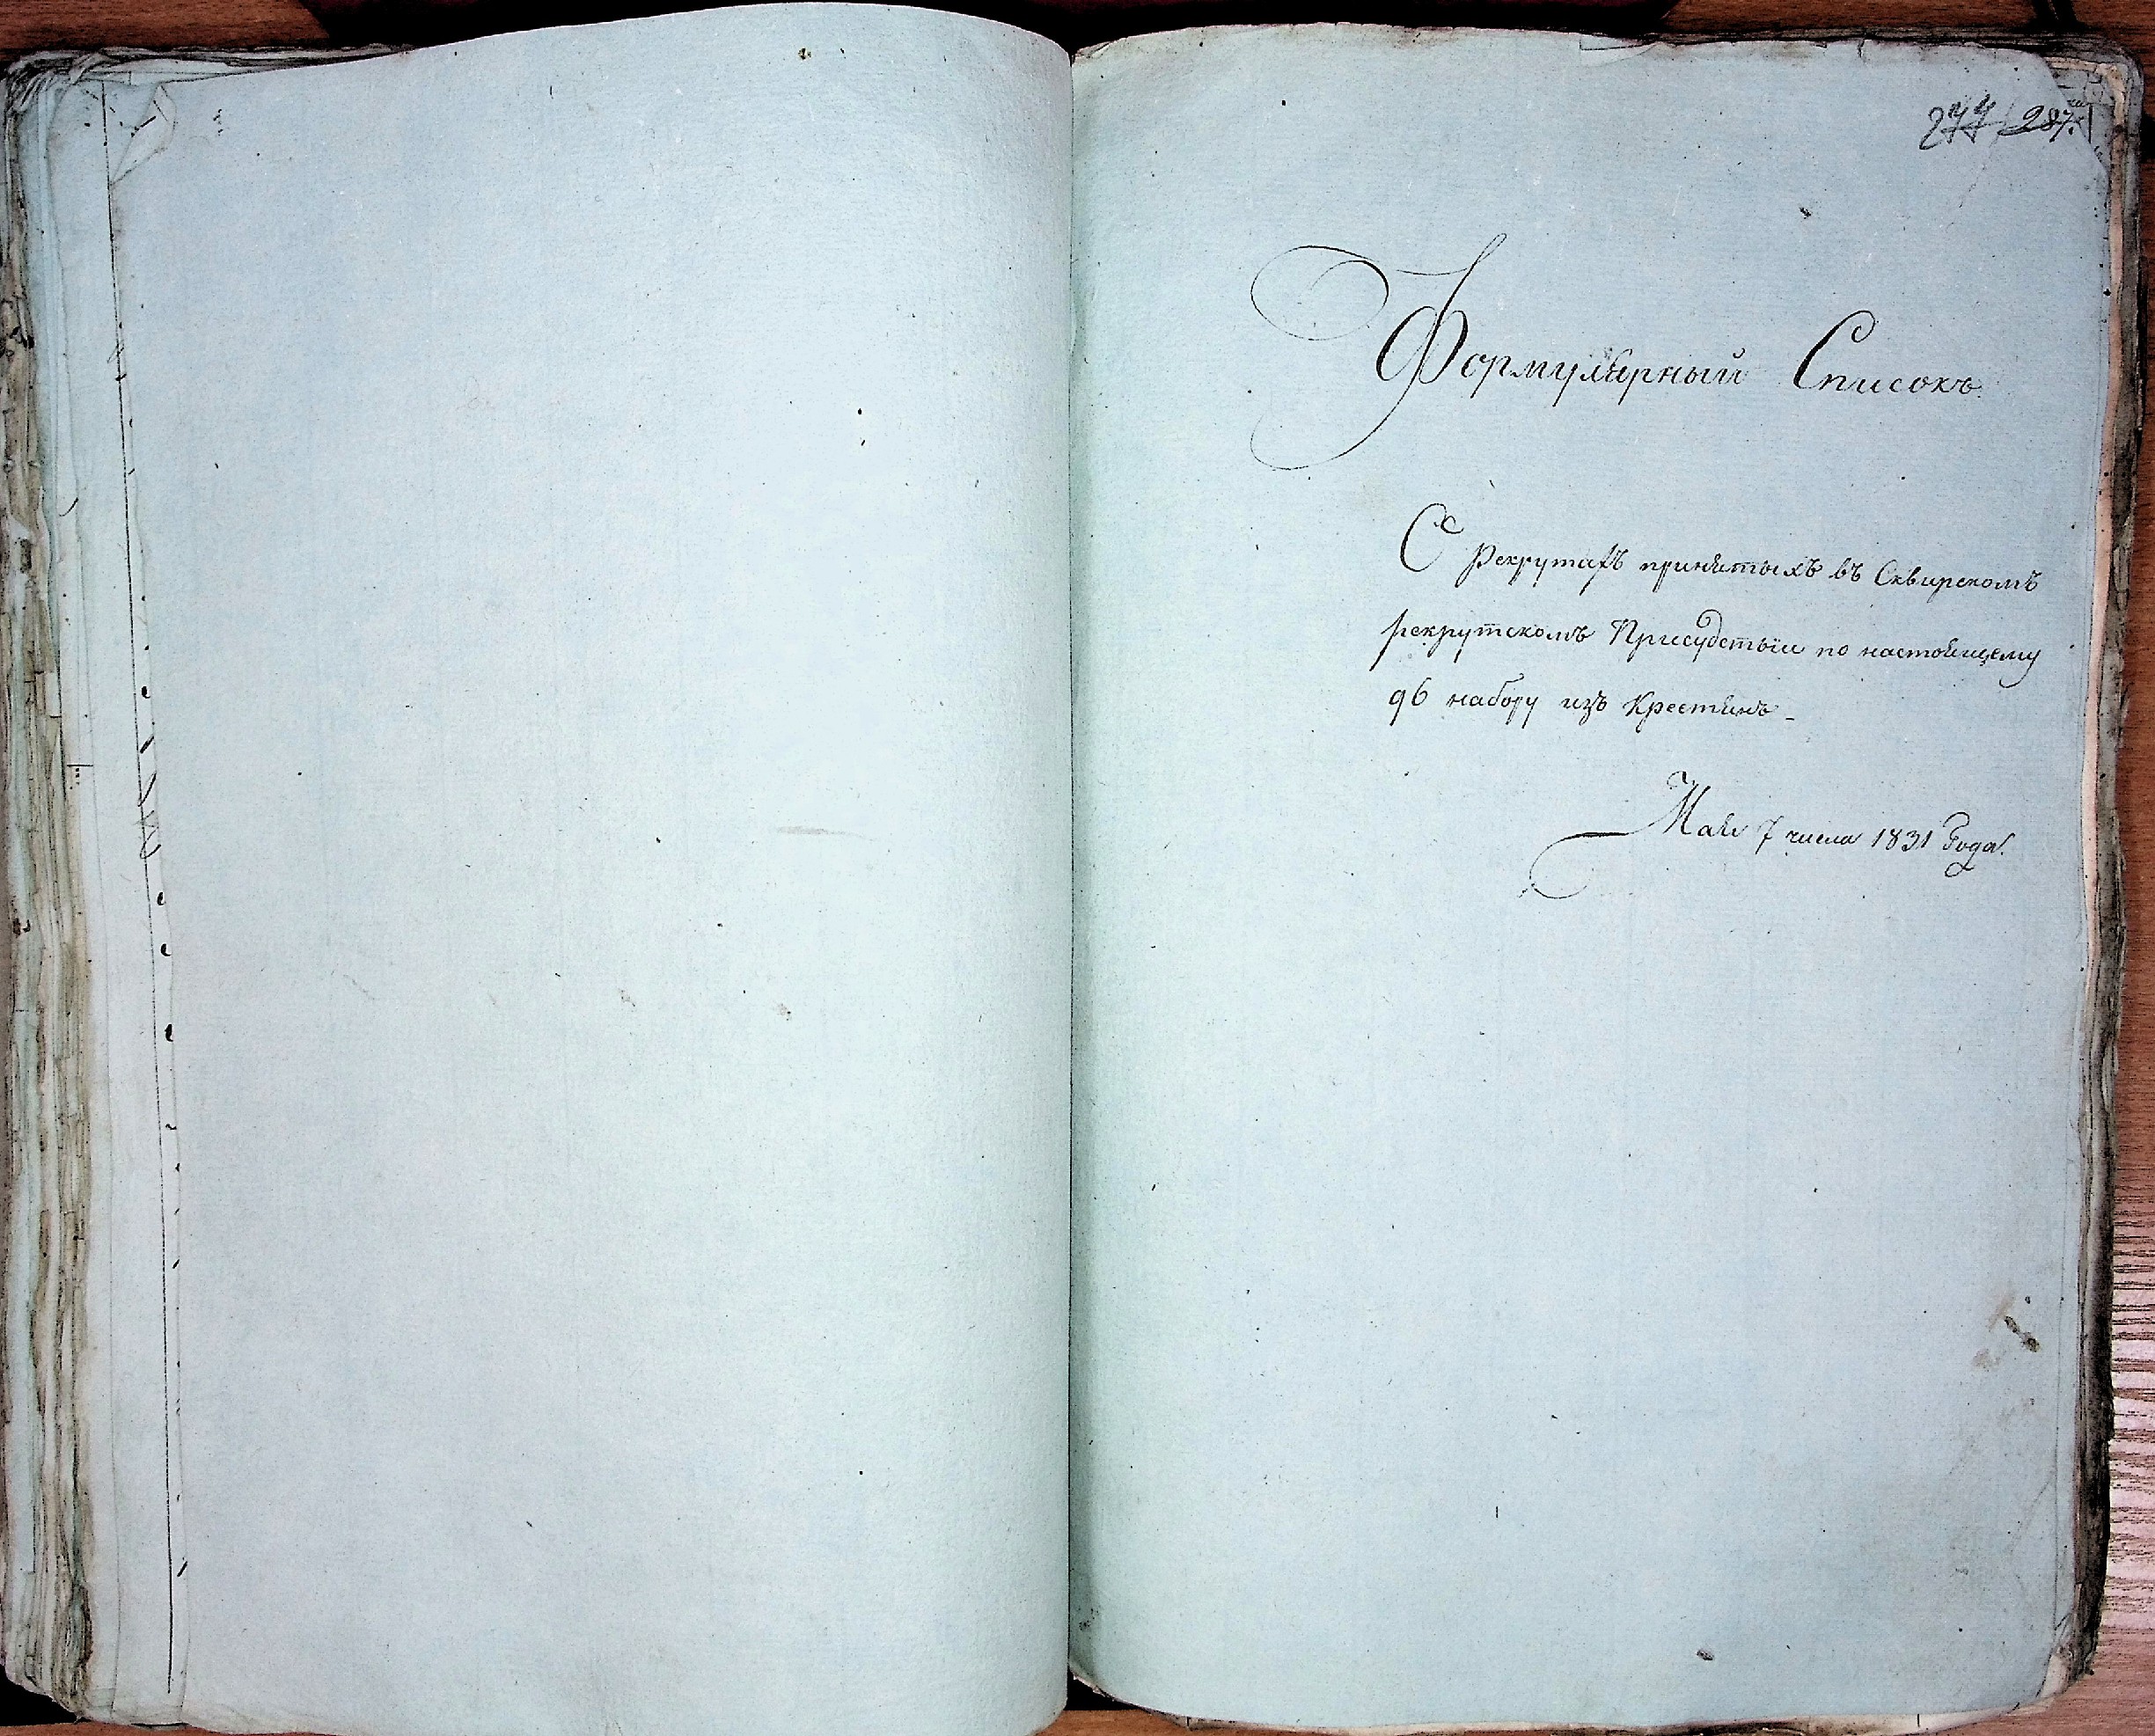 277 287.
Формулярный Списокъ.
О Рекрутахъ принятыхъ въ Сквирскомъ
рекрутскомъ Присудствіи по настоящему
96 набору изъ Крестянъ
Мая 7 числа 1831 Года.